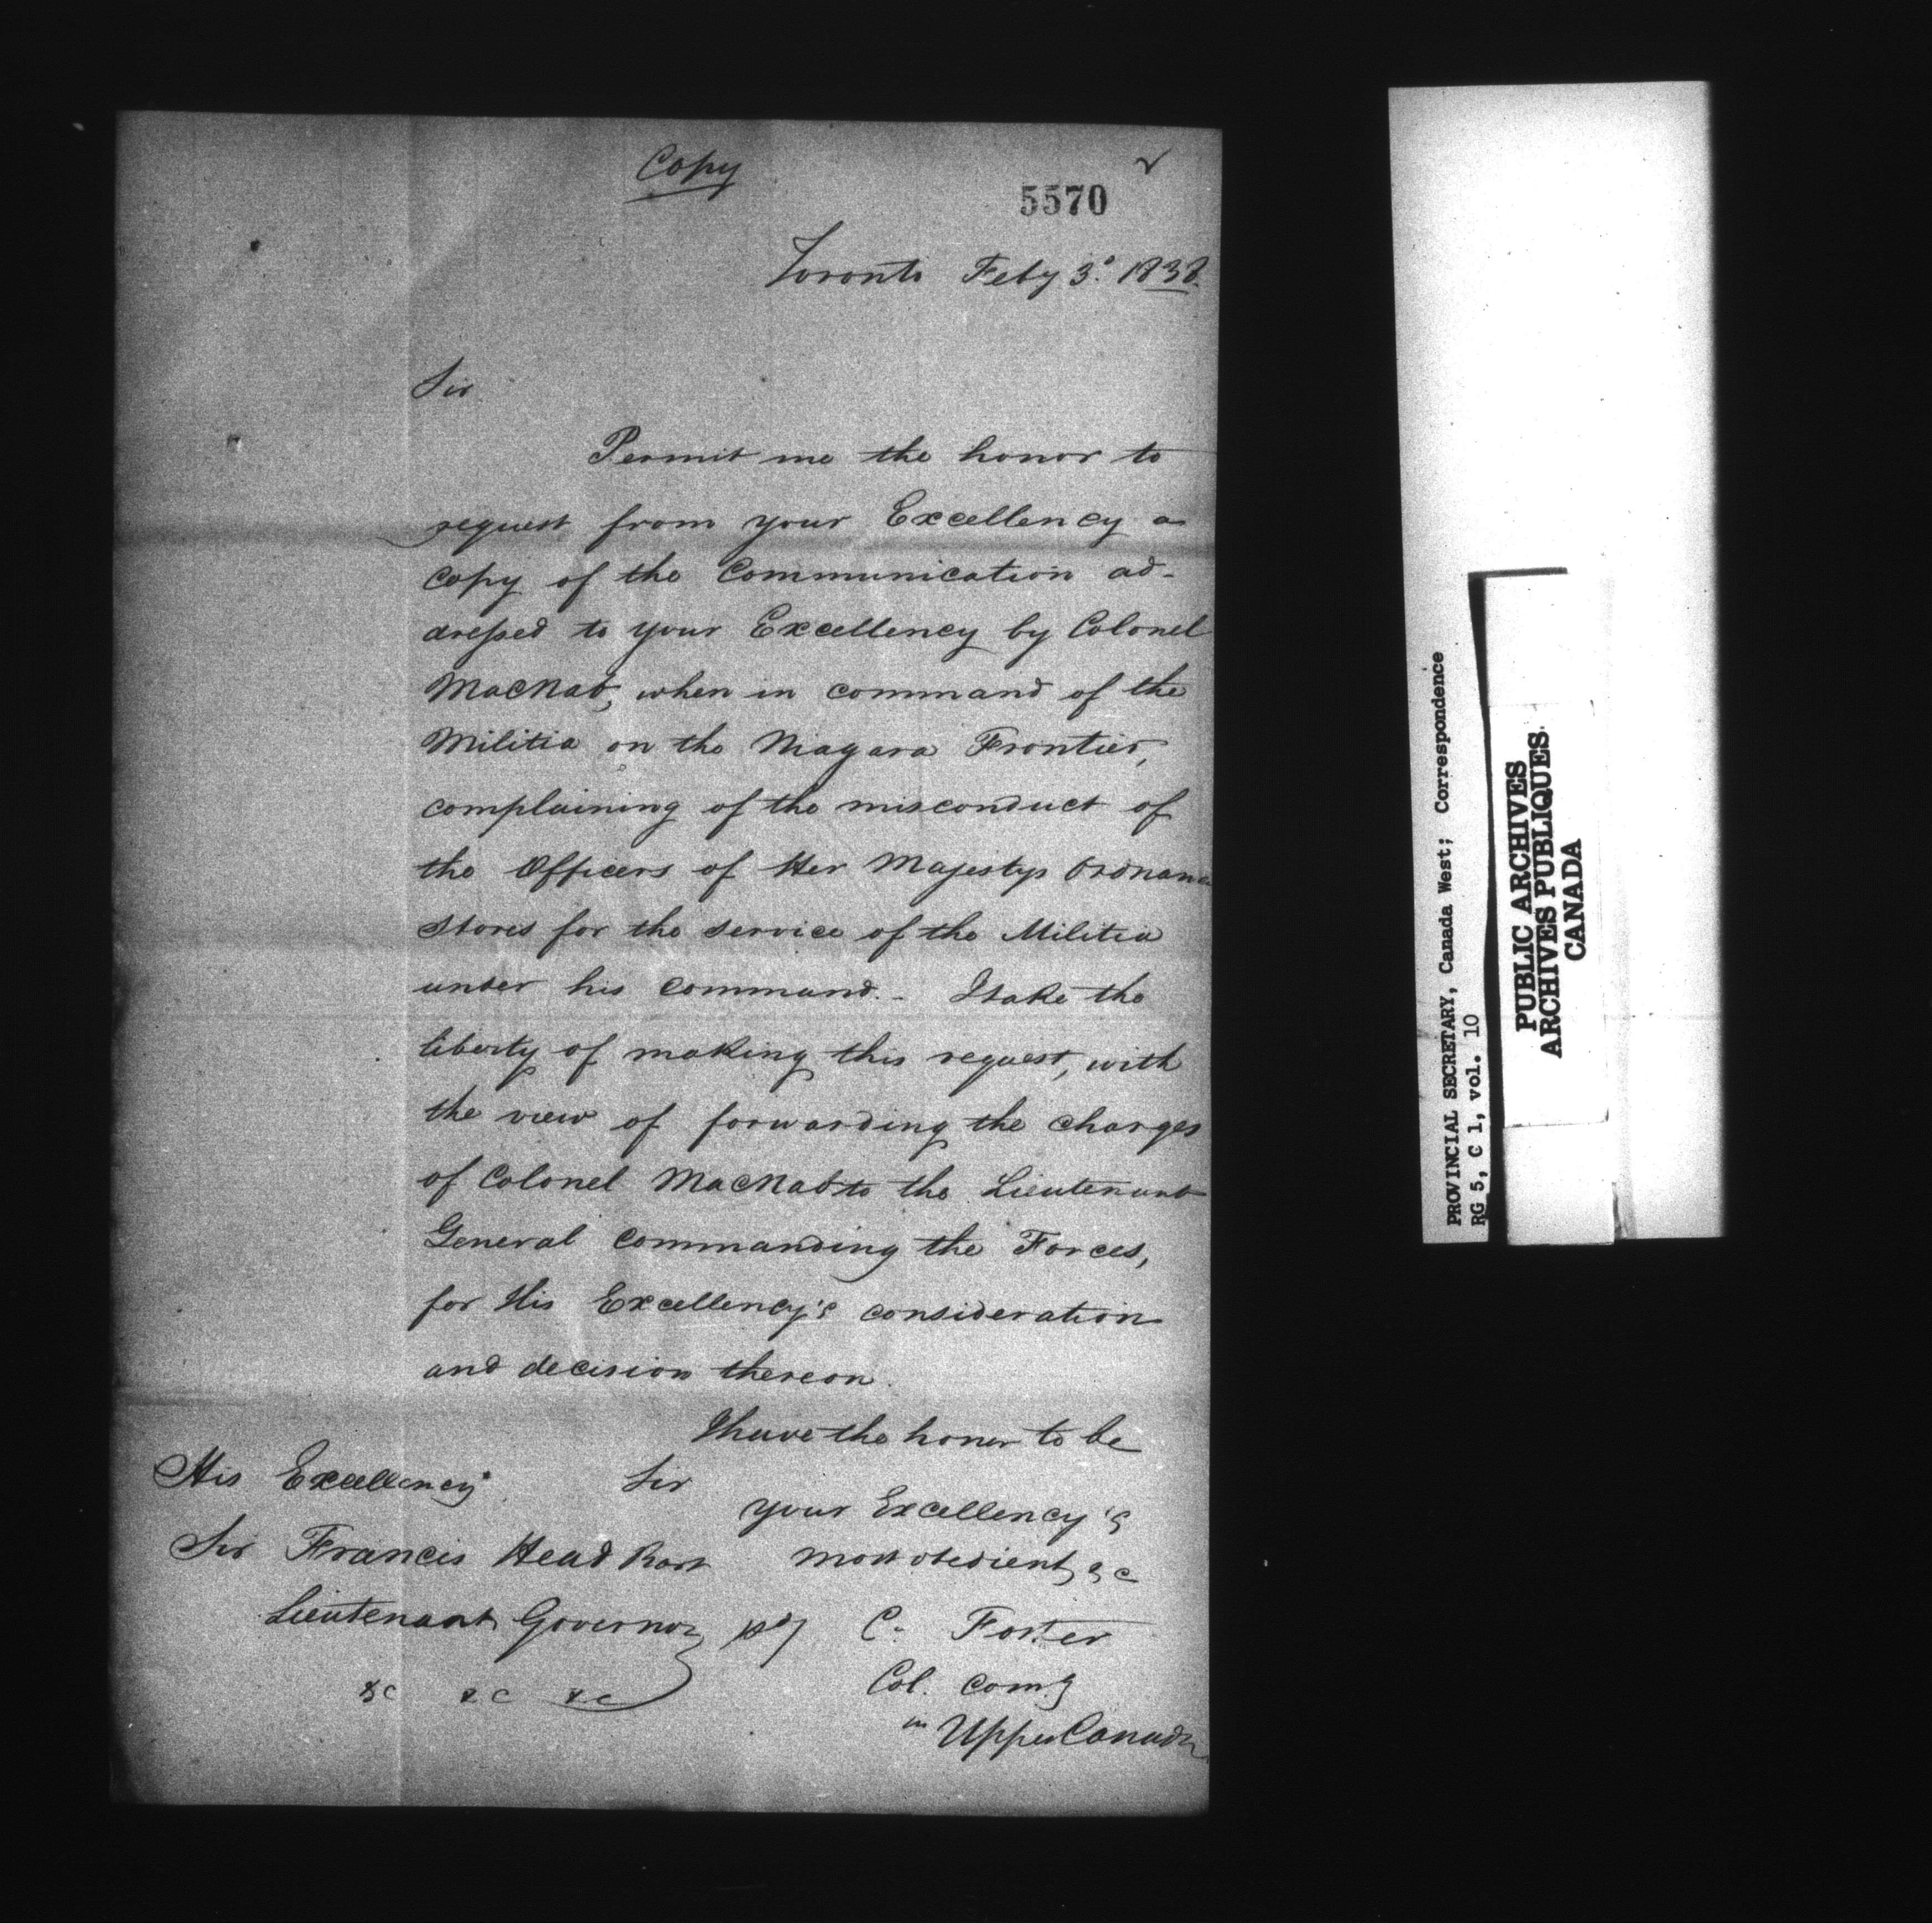 Copy
5570
Toronto Feby 3d. 1838.
Sir
Permit me the honor to
request from your Excellency a
Copy of the Communication ad-
dressed to your Excellency by Colonel
MacNab, when in command of the
Militia on the Niagara Frontier,
complaining of the misconduct of
the Officers of Her Majestys Ordnance
Stores for the service of the Militia
under his command. - I take the
liberty of making this request, with
the view of forwarding the charges
of Colonel MacNab to the Lieutenant
General Commanding the Forces,
for His Excellency's consideration
and decision thereon.
I have the honor to be
Sir
your Excellency's
most obedient &c
C. Foster
Col. Comg
in Upper Canada
His Excellency
Sir Francis Head Bart
Lieutenant Governor
&c &c &c
PROVINCIAL SECRETARY, Canada West; Correspondence
RG 5, C 1, vol. 10
PUBLIC ARCHIVES
ARCHIVES PUBLIQUES
CANADA